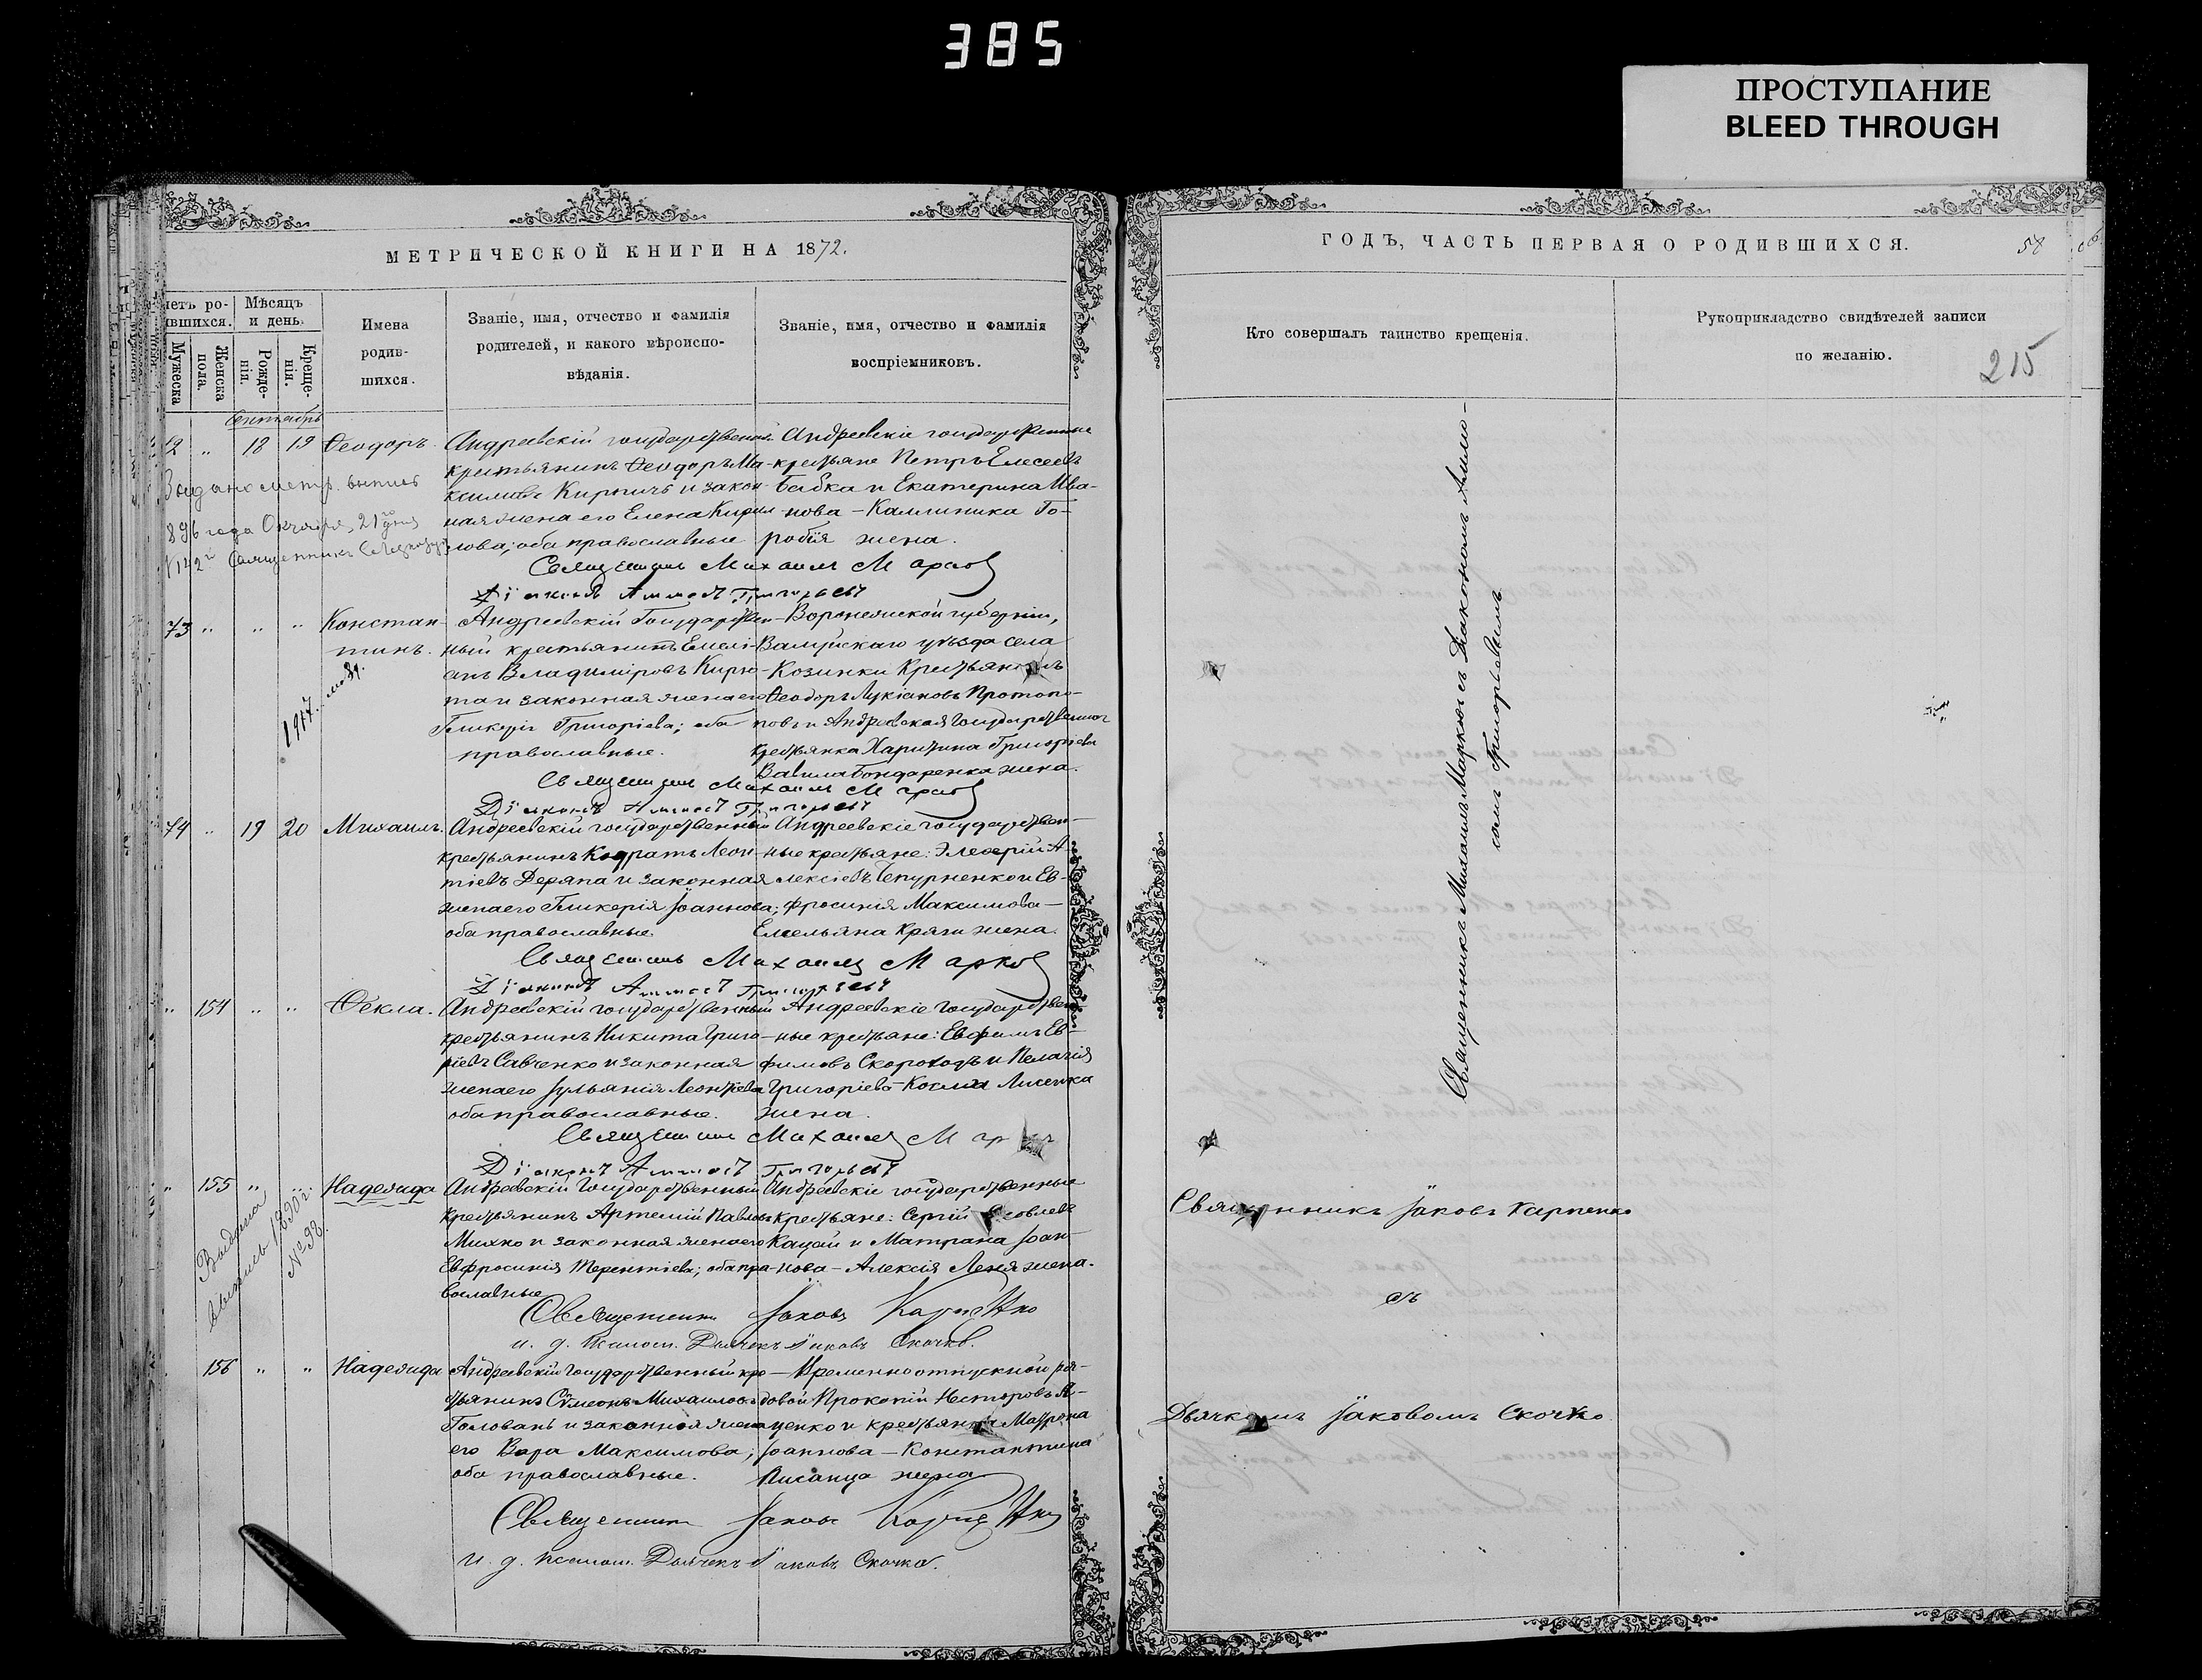 385
ПРОСТУПАНИЕ
BLEED THROUGH
МЕТРИЧЕСКОЙ КНИГИ НА 1872.
ГОДЪ, ЧАСТЬ ПЕРВАЯ О РОДИВШИХСЯ.
58
215
Мѣсяцъ
и день.
Мужеска
Женска
пола.
Рожде-
нія.
Креще-
нія.
Имена
родив-
шихся.
Званіе, имя, отчество и фамилія
родителей, и какого вѣроиспо-
вѣданія.
Званіе, имя, отчество и фамилія
воспріемниковъ.
Кто совершалъ таинство крещенія.
Рукоприкладство свидѣтелей записи
по желанію.
Сентябрь
18 19 Ѳеодоръ.
Андреевскій государственный
крестьянинъ Ѳеодоръ Ма-
ксимовъ и закон-
ная жена его Елена Кирил-
лова; оба православные
Андреевскіе государственные
крестьяне Петръ Елесеевъ
Бабка и Екатерина Ива-
нова – Каллиника Го-
робія жена.
Священникъ Михаилъ Марковъ
Діаконъ Аммосъ Григорьевъ
73 " " " Констан-
тинъ.
1917
Андреевскій Государствен-
ный крестьянинъ Емелі-
анъ Владиміровъ Кирю-
та и законная жена его
Гликерія Григоріева; оба
православные.
Воронежской губерніи,
Валуйскаго уѣзда села
Козинки Крестьянинъ
Ѳеодоръ Лукіановъ Протопо-
повъ и Андреевская Государственная
крестьянка Харитина Григоріева
Вавила Бондаренка жена.
Священникъ Михаилъ Марковъ
Діаконъ Аммосъ Григорьевъ
74 " 19 20 Михаилъ.
Андреевскій государственный
крестьянинъ Кодратъ Леон-
тіевъ Деряпа и законная
жена его Гликерія Іоаннова;
оба православные.
Андреевскіе государствен-
ные крестьяне: Элевѳерій А-
лексіевъ Чепурненко и Ев-
фросинія Максимова –
Емельяна Кряги жена.
Священникъ Михаилъ Марковъ
Діаконъ Аммосъ Григорьевъ
" 154 " " Ѳекла.
Андреевскій государственный
крестьянинъ Никита Григо-
ріевъ Савченко и законная
жена его Іульянія Леонтіева
оба православные.
Андреевскіе Государствен-
ные крестьяне: Евфимъ Ев-
фимовъ Скороходъ и Пелагія
Григоріева – Косма Лисенка
жена.
Священникъ Михаилъ
Діаконъ Аммосъ Григорьевъ
" 155 " " Надежда
Выдана
1890 г.
Андреевскій Государственный
крестьянинъ Артемій Павловъ
Михно и законная жена его
Евфросинія Терентіева; оба пра-
вославные
Андреевскіе государственные
крестьяне: Сергій
Кацай и Матрона Іоан-
нова – Алексія жена.
Священникъ Іаковъ Карпенко
и. д. псалом. Дьячекъ Іаковъ Скочко.
156 " " Надежда
Андреевскій Государственный кре-
стьянинъ Симеонъ Михаиловъ
Головань и законная жена
его Вѣра Максимова;
оба православные.
Временно отпускной ря-
довой Прокопій Несторовъ Я-
ценко и крестьянка Матрона
Іоаннова – Константина
Писанца жена
Священникъ Іаковъ Карпенко
и. д. псалом. Дьячекъ Іаковъ Скочко.
Священникъ Михаилъ Марковъ съ Діакономъ Аммо-
сомъ Григорьевымъ
Священникъ Іаковъ Карпенко
съ
Дьячкомъ Іаковомъ Скочко.